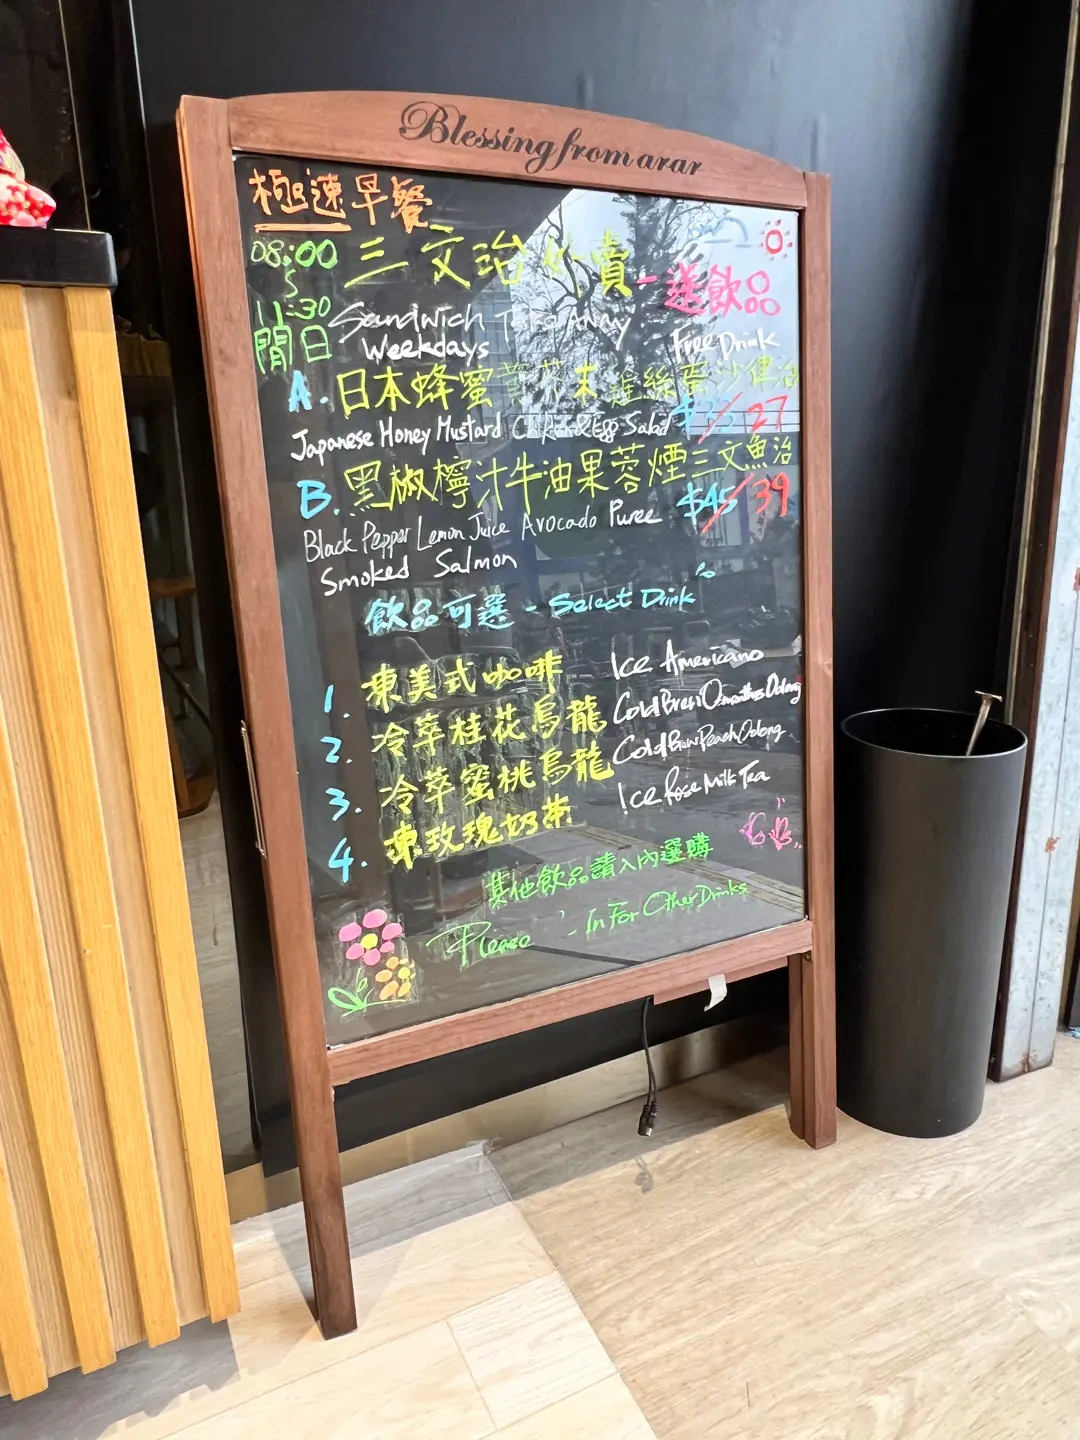 Blessing from arar
極速早餐
08:00
11:30
閒日
三文治外賣 - 送飲品
Sandwich Take Away
Weekdays
Free Drink
A. 日本蜂蜜 末 雞絲蛋沙律治
/27
Japanese Honey Mustard Chicken & Egg Salad
B. 黑椒檸汁牛油果蓉煙三文魚治
$45/39
Black Pepper Lemon Juice Avocado Puree
Smoked Salmon
飲品可選 - Select Drink
1. 凍美式咖啡 Ice Americano
2. 冷萃桂花烏龍 Cold Brew Osmanthus Oolong
3. 冷萃蜜桃烏龍 Cold Brew Peach Oolong
4. 凍玫瑰奶茶 Ice Rose Milk Tea
其他飲品請入內選購
Please - In For Other Drinks